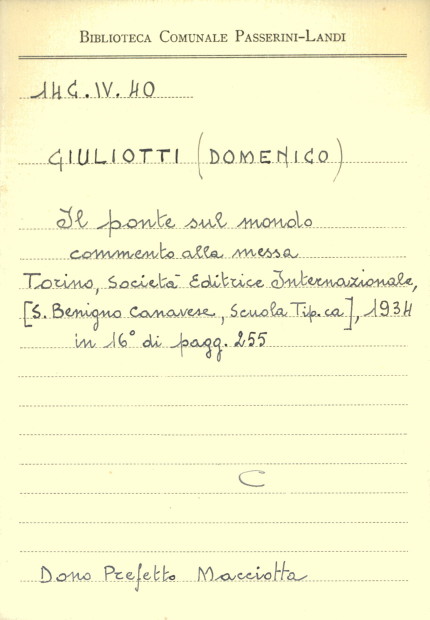 BIBLIOTECA COMUNALE PASSERINI-LANDI
14C.IV.40
GIULIOTTI (DOMENICO)
Il ponte sul mondo
commento alla messa
Torino, Società Editrice Internazionale,
[S. Benigno Canavese, Scuola Tip.ca], 1934
in 16° di pagg. 255
C
Dono Prefetto Macciotta